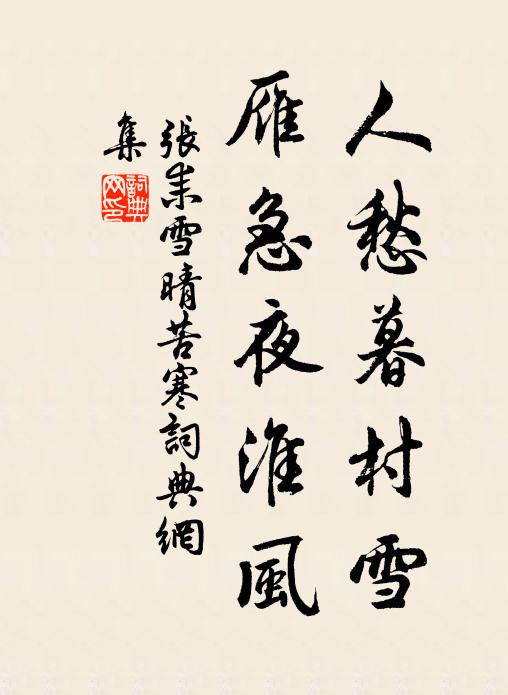 人愁暮村雪
雁急夜淮風
張耒雪晴苦寒詞典網
集
詞典
网印